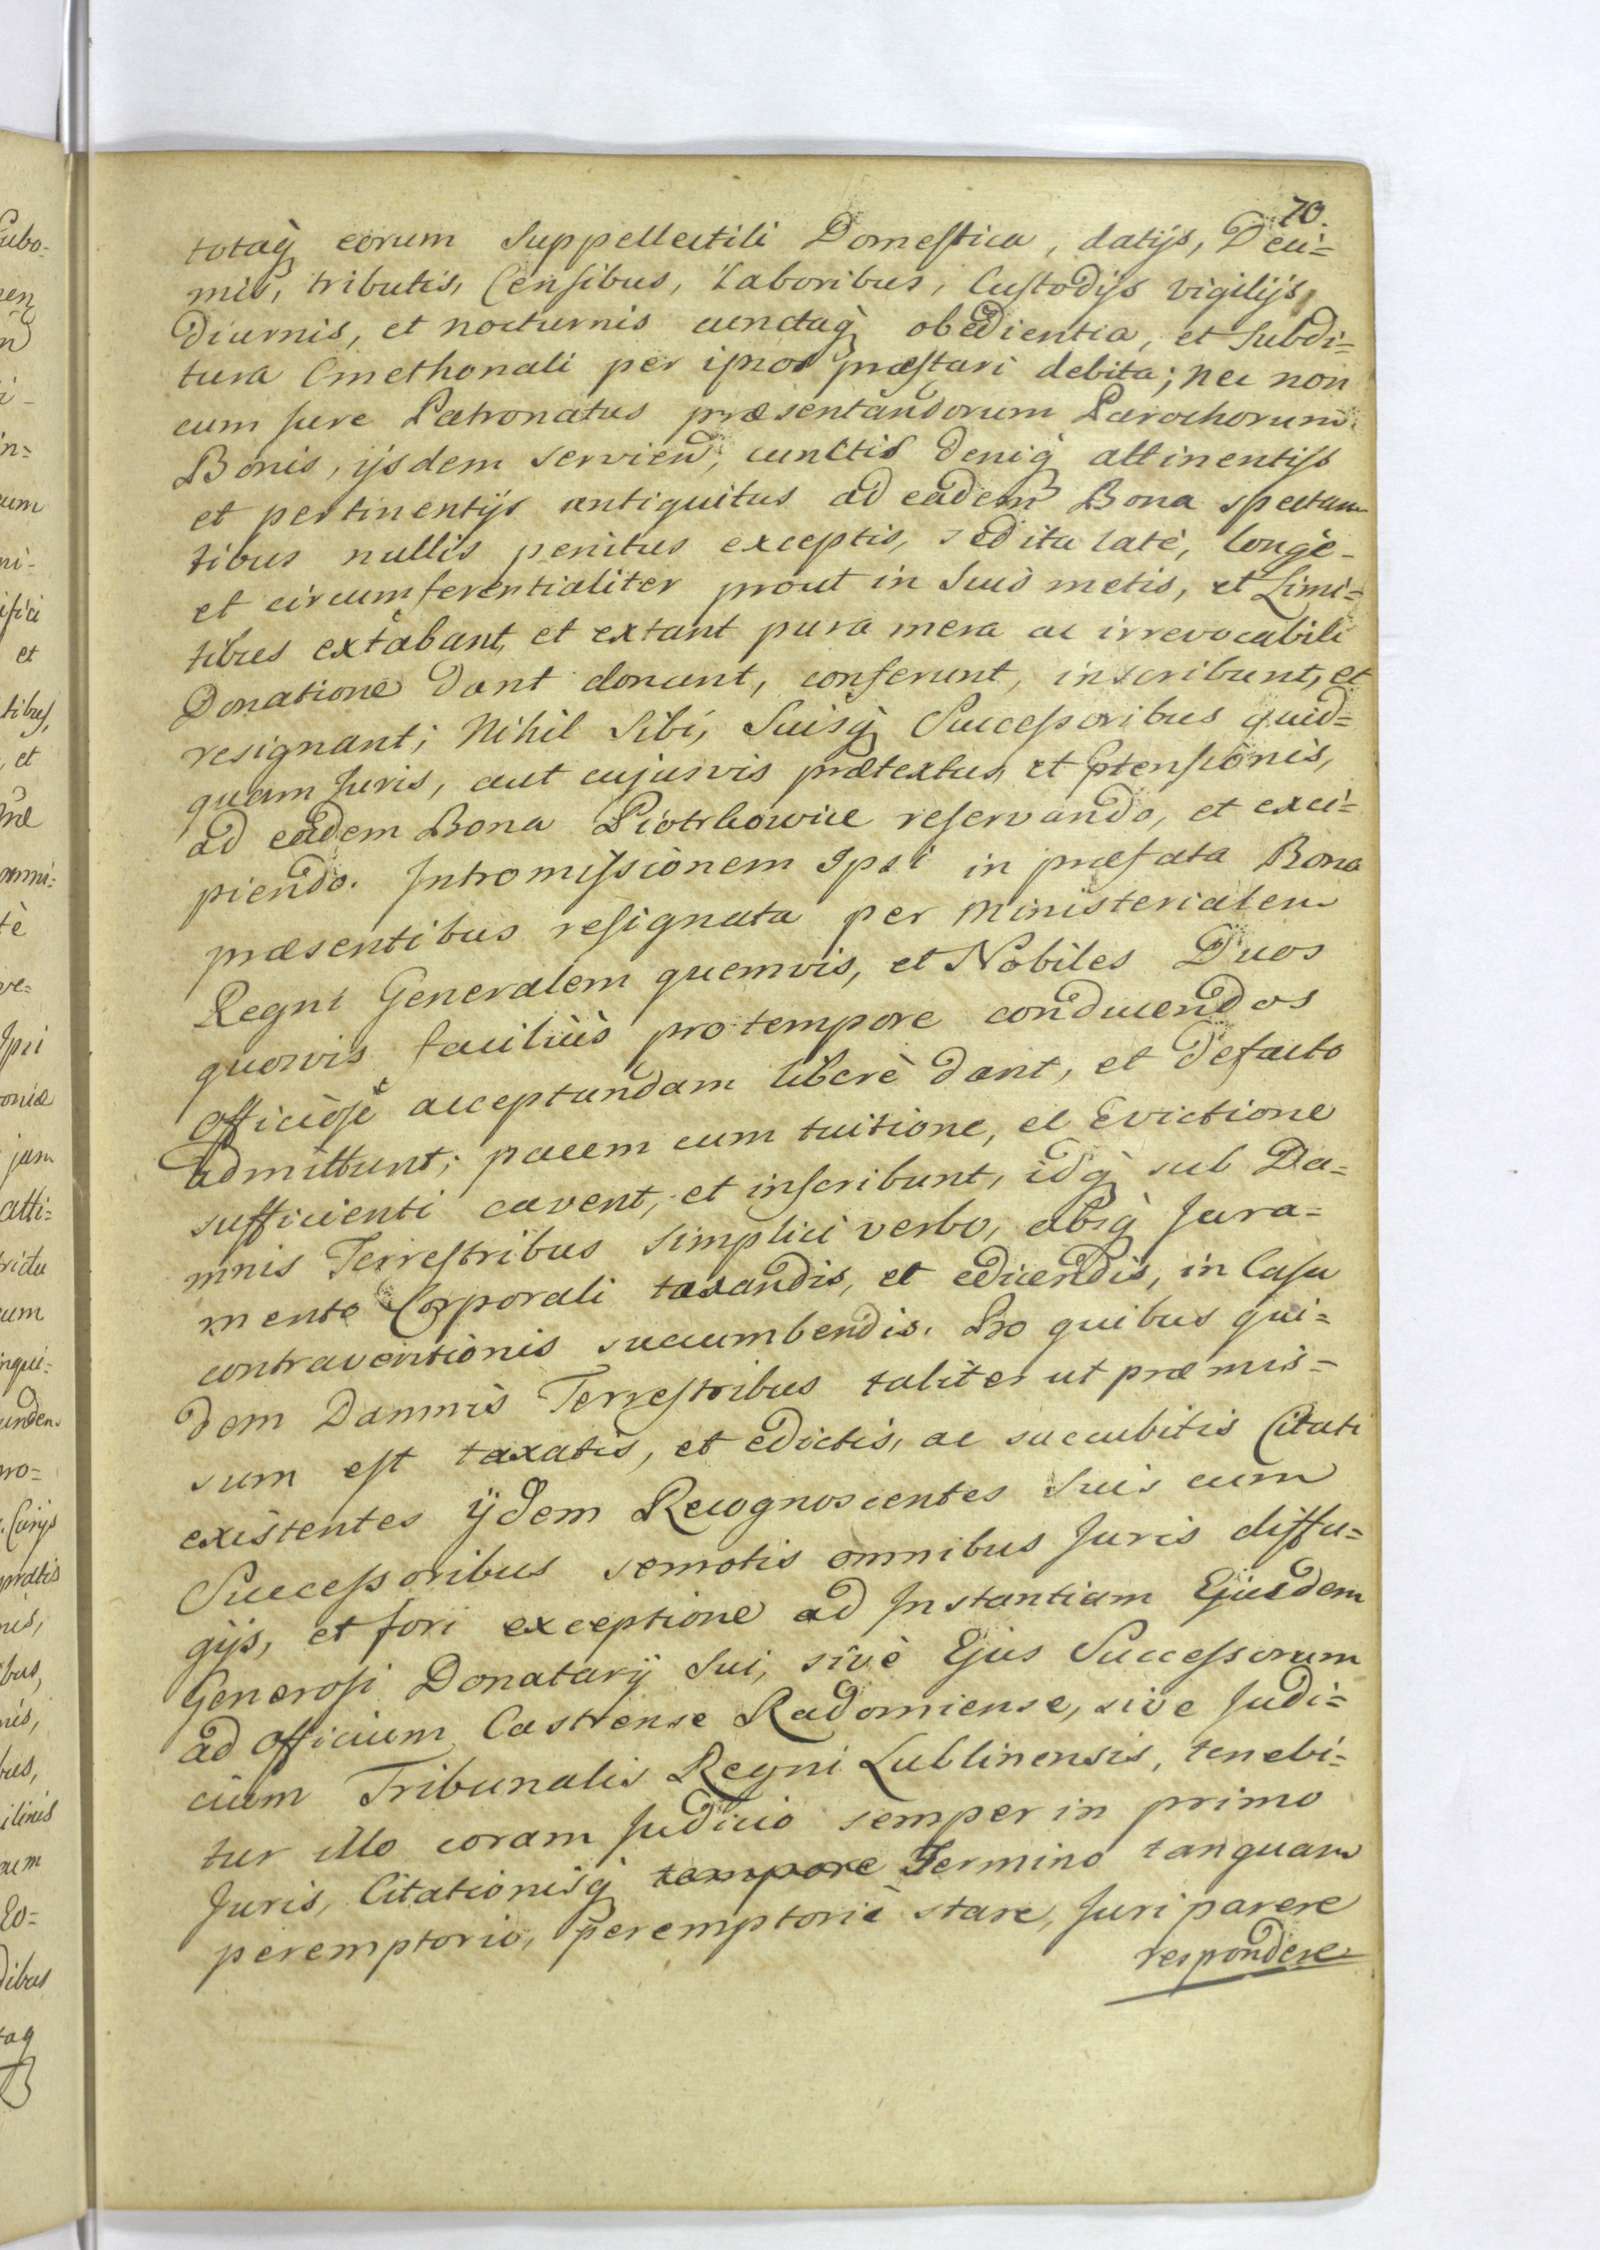 70.
totaq̃ eorum Suppellectili Domestica, datijs, Deci=
mis, tributis, Censibus, Laboribus, Custodijs vigilijs
diurnis, et nocturnis cunctaq̃ obedientia, et Subdi=
tura Cmethonali per ipsos præstari debita; nec non
cum Jure Patronatus præsentandorum Parochorum
Bonis, ijsdem servieñ, cunctis deniq̃ attinentijs
et pertinentijs antiquitus ad eadem Bona spectan
tibus nullis penitus exceptis, sed ita latè, longè
et circumferentialiter prout in Suis metis, et Limi=
tibus extabant, et extant pura mera ac irrevocabili
Donatione dant donant, conferunt, inscribunt, et
resignant; Nihil Sibi, Suisq̃ Successoribus quid=
quam Juris, aut cujusvis prætextus, et Ptensionis,
ad eadem Bona Piotrkowice reservando, et exci=
piendo. Intromissionem Ipsi in præfata Bona
præsentibus resignata per Ministerialem
Regni Generalem quemvis, et Nobiles Duos
quosvis faciliùs pro tempore conducendos
officiosè acceptandam liberè dant, et defacto
admittunt; pacem cum tuitione, et Evictione
sufficienti cavent, et inscribunt, idq̃ sub Da=
mnis Terrestribus simplici verbo, absq̃ Jura=
mento Corporali taxandis, et edicendis, in Casu
contraventionis succumbendis. Pro quibus qui=
dem Damnis Terrestribus taliter ut præmis=
sum est taxatis, et edictis, ac succubitis Citati
existentes ijdem Recognoscentes Suis cum
Successoribus semotis omnibus Juris diffu=
gijs, et fori exceptione ad Instantiam Ejusdem
Generosi Donatarij Sui, sivè Ejus Successorum
ad Officium Castrense Radomiense, sive Judi=
cium Tribunalis Regni Lublinensis, tenebi=
tur illo coram Judicio semper in primo
Juris, Citationisq̃ tempore Termino tanquam
peremptorio, peremptoriè stare, Juri parere
respondere